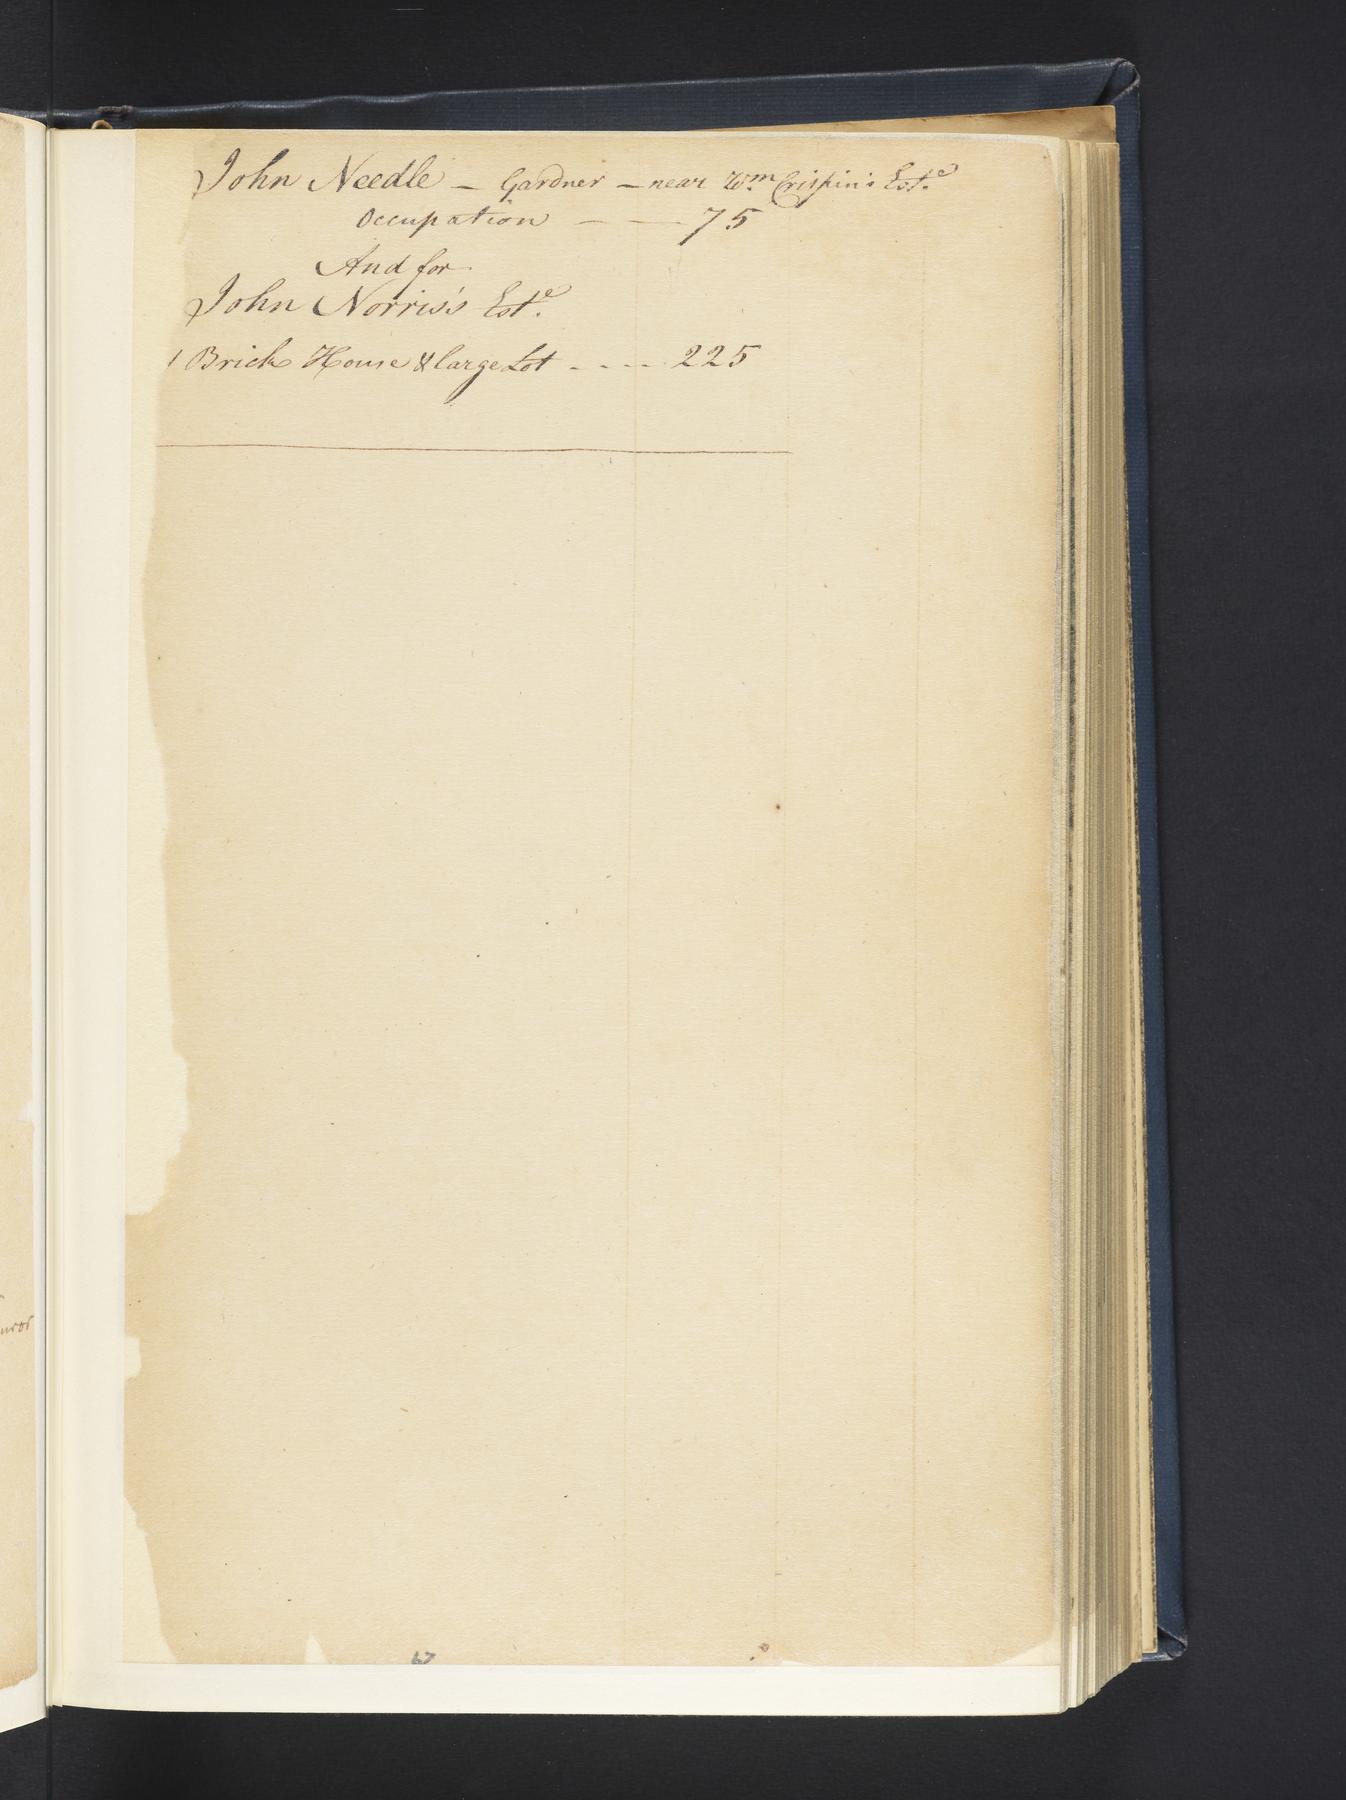 John Needle — Gardner — near Wm. Crispin's Este.
Occupation — — 75
And for
John Norris's Este.
1 Brick House & large Lot - - - - 225